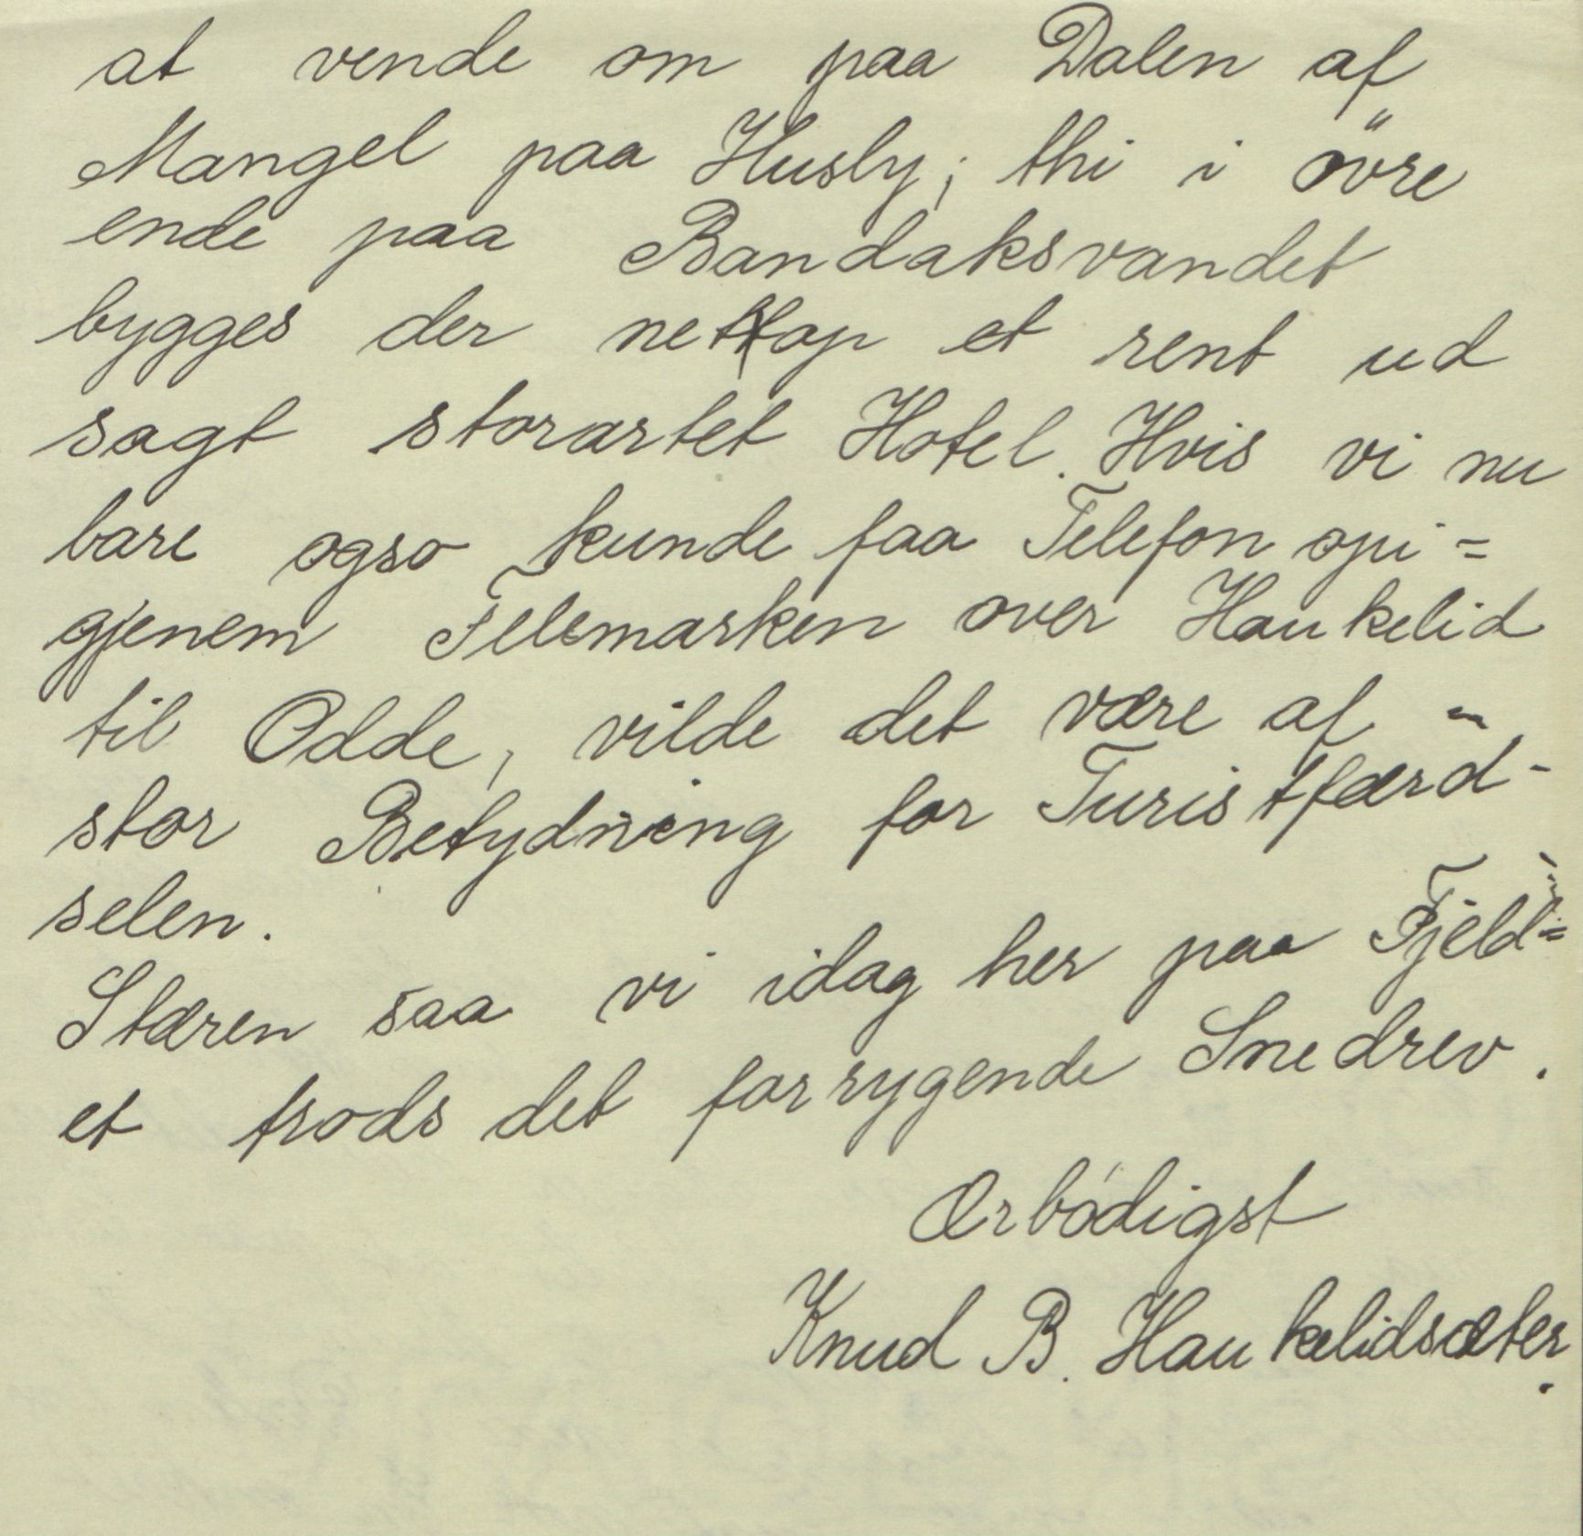 at vende om paa Dalen af
Mangel paa Husly; thi i övre
ende paa Bandaksvandet
bygges der nettop et rent ud
sagt storartet Hotel. Hvis vi nu
bare ogso kunde faa Telefon opi=
gjenem Telemarken over Haukelid
til Odde, vilde det være af
stor Betydning for Turistfærd-
selen.
Stæren saa vi idag her paa Fjeld=
et trods det forrygende Snedrev.
Ærbödigst
Knud B. Haukelidsæter.